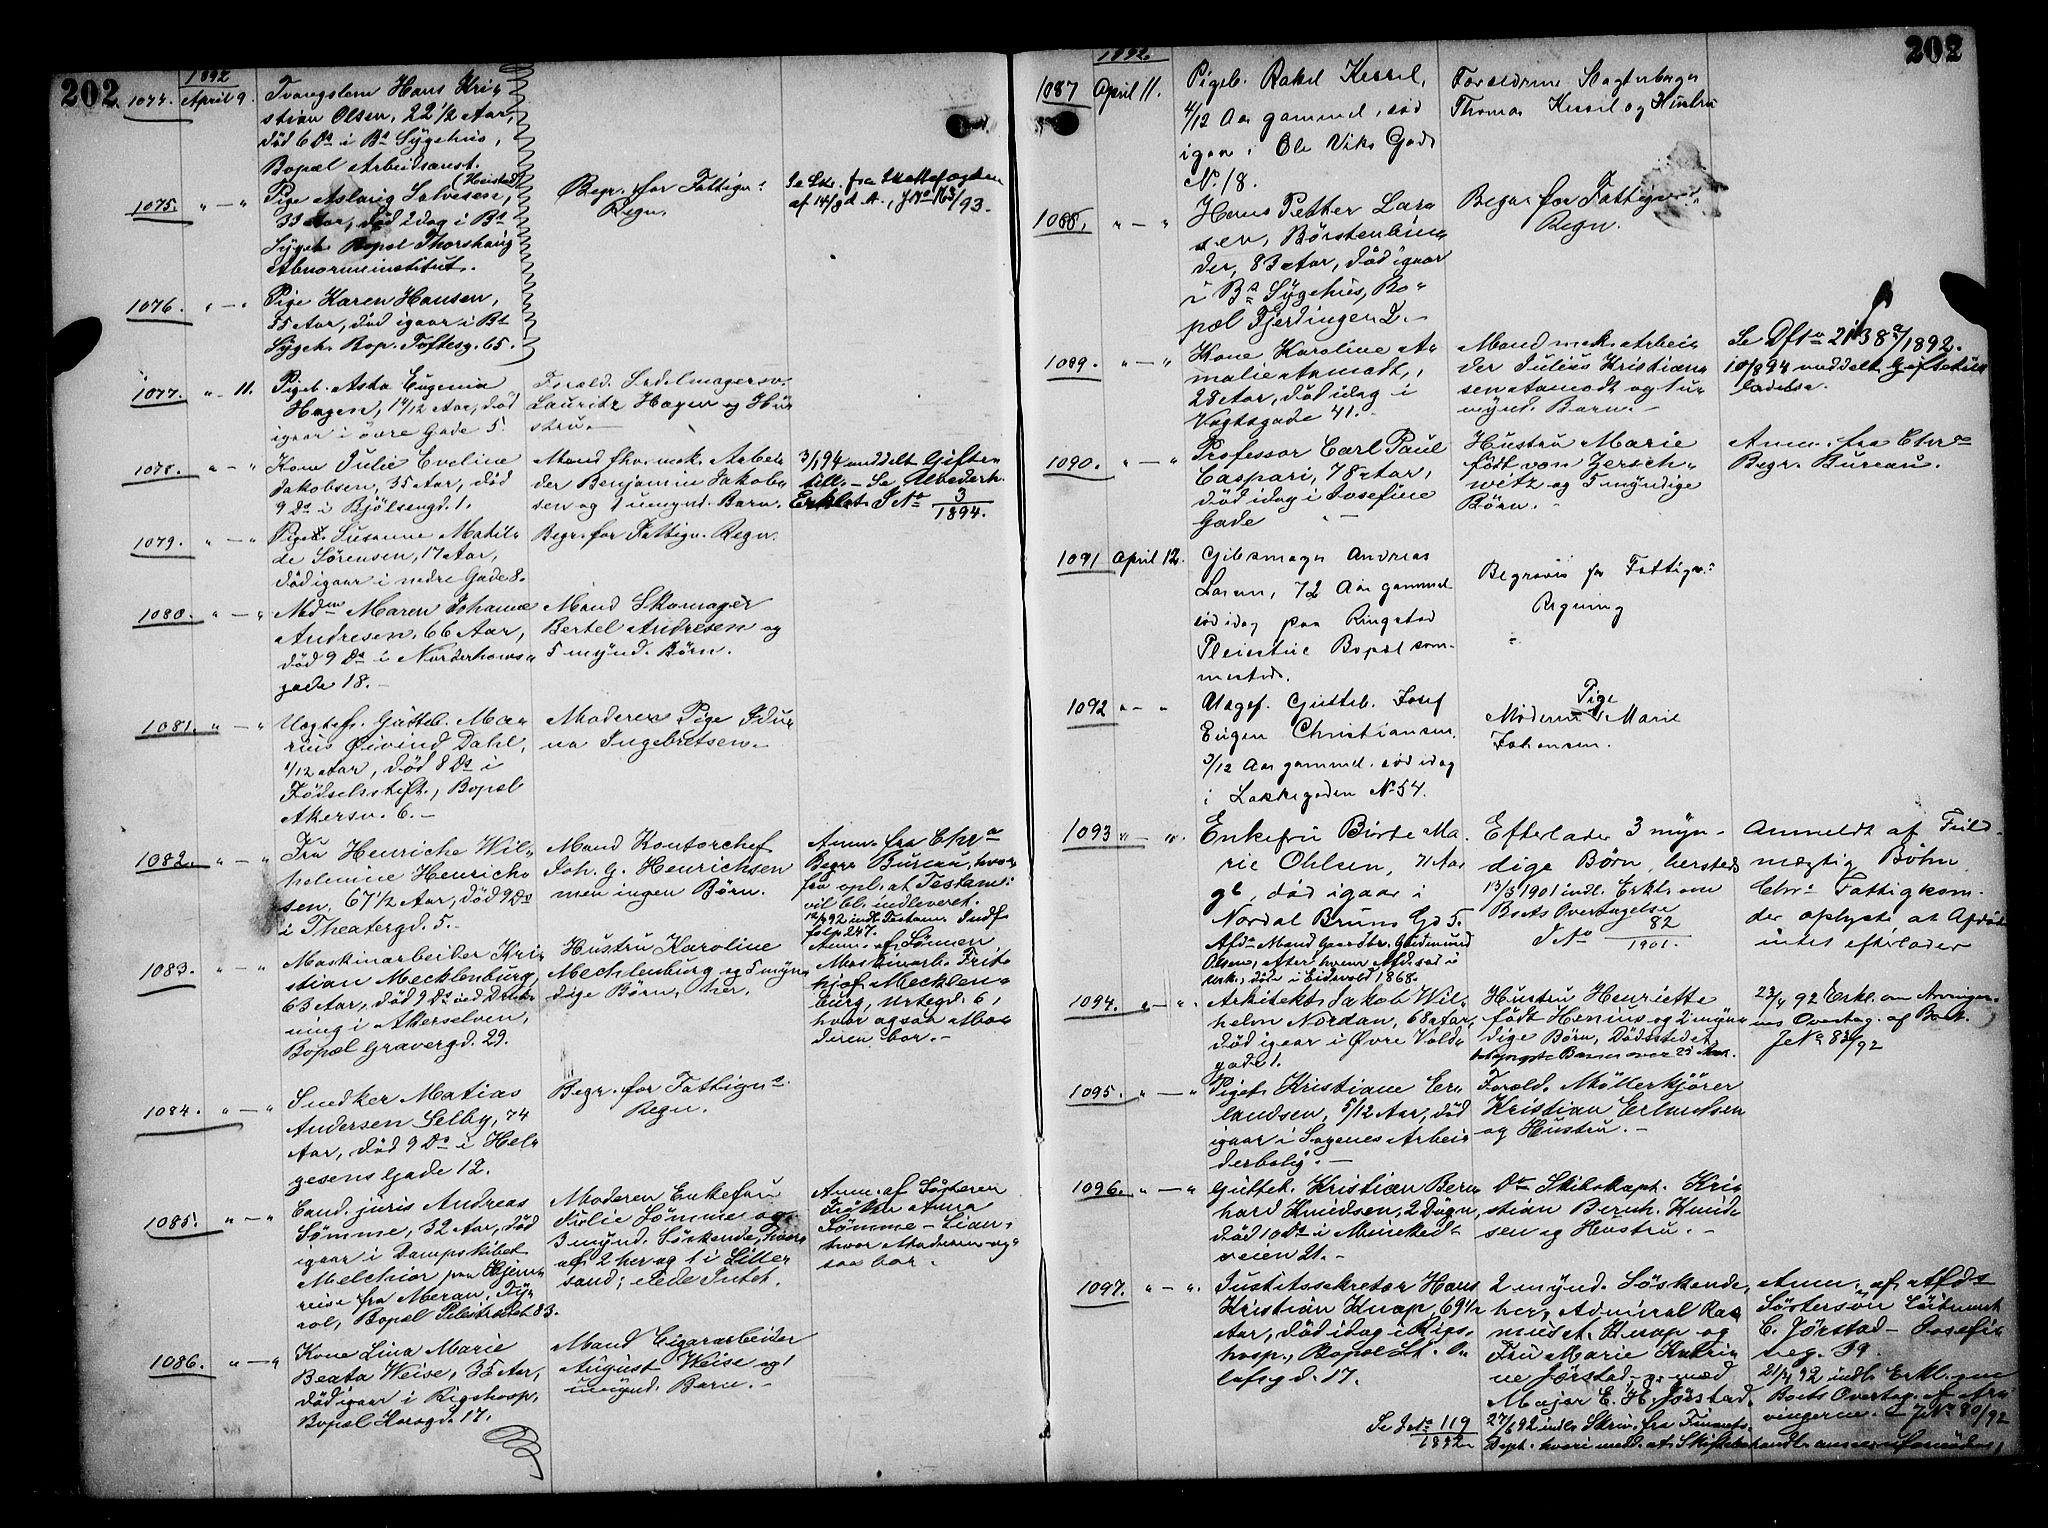 202
1892
1074. April 9. Tvangslem Hans Kri-
stian Olsen, 22 1/2 Aar,
död 6 Ds i Bs Sygehus,
Bopæl Arbeidsanst.
1075. " — " Pige Aslaug Salvesen, (Heistad)
33 Aar, död 2 dag i Bs
Sygeh. Bopæl Thorshaug
Abnorminstitut.
Begr. for Fattigv.s
Regn.
Se Sk. fra Skattefogden
af 14/9 d. A., J No 163/93.
1076. " — " Pige Karen Hansen,
55 Aar, död igaar i Bs
Sygeh. Bop. Toftesg. 65.
1077. " 11. Pigeb. Asta Eugenia
Hagen, 1 4/12 Aar, död
igaar i övre Gade 5.
Foræld. Sadelmagersv.
Lauritz Hagen og Hu-
stru.
1078. " — " Kone Julie Eveline
Jakobsen, 35 Aar, död
9 Ds i Bjölsengd. 1.
Mand fhv. mek. Arbei-
der Benjamin Jakob-
sen og 1 umynd. Barn.
3/1 94 meddelt Gifte-
till. — Se Uberderh.
Erklæt. J No 3/1894.
1079. " — " Pige Susanne Matil-
de Sörensen, 17 Aar,
död igaar i nedre Gade 8.
Begr. for Fattigv. Regn.
1080. " — " Mdm Maren Johanne
Andresen, 66 Aar,
död 9 Ds i Norderhows-
gade 18. —
Mand Skomager
Bertel Andresen og
5 mynd. Börn.
1081. " — " Uægtef. Gutteb. Ma-
rius Öivind Dahl,
1/12 Aar, död 8 Ds i
Födselsstift., Bopæl
Akersv. 6. —
Moderen Pige Idu-
na Ingebretsen.
1082. " — " Fru Henriche Wil-
helmine Henrich-
sen, 67 1/2 Aar, död 9 Ds
i Theatergd. 5.
Mand Kontorchef
Joh. G. Henrichsen
men ingen Börn.
Anm. fra Chr.a
Begr. Bureau, hvor-
fra opl. at Testam.
vil bl. indleveret.
14/4 92 indl. Testam. Indf.
fol. 247.
1083. " — " Maskinarbeider Kri-
stian Mecklenburg,
63 Aar, död 9 Ds ved Druk-
ning i Akerselven,
Bopæl Gravergd. 29.
Hustru Karoline
Mechlenburg og 5 myn-
dige Börn, her.
Anm. af Sönnen
Maskinarb. Frit-
hjof Mecklen-
burg, Urtegd. 6,
hvor ogsaa Mo-
deren bor. —
1084. " — " Snedker Matias
Andersen Selby, 74
Aar, död 9 Ds i Hel-
gesens Gade 12.
Begr. for Fattigv.s
Regn.
1085. " — " Cand. juris Andreas
Sömme, 32 Aar, död
igaar i Dampskibet
Melchior paa Hjem-
reise fra Meran, Ty-
rol, Bopæl Pilestrædet 83.
Moderen Enkefru
Julie Sömme og
3 mynd. Söskende, hvor-
af 2 her og 1 i Liller-
sand; Efterl. Intet.
Anm. af Systeren
Fröken Anna
Sömme —
hvor Moderen og-
saa bor. —
1086. " — " Kone Lina Marie
Beata Weise, 35 Aar,
död igaar i Rigshosp.
Bopæl Korsgd. 17.
Mand Cigararbeider
August Weise og 1
umynd. Barn. —
202
1892.
1087 April 11. Pigeb. Rakel Kessel,
4/12 Aar gammel, död
igaar i Ole Viks Gade
No. 18.
Forældrene Slagterborger
Thomas Kessel og Hustru
1088. " — " Hans Petter Lar-
sen, Börstenbin-
der, 83 Aar, död igaar
i Bs Sygehus, Bo-
pæl Fjerdingen 2. —
Begr. for Fattigv.s
Regn.
1089. " — " Kone Karoline A-
malie Aamodt,
28 Aar, död idag i
Vogtsgade 41. —
Mand mek. Arbei-
der Julius Kristian-
sen Aamodt og 1 u-
mynd. Barn. —
Se Df. No 2138 a/1892.
10/8 94 meddelt Giftetil-
ladelse.
1090. " — " Professor Carl Paul
Caspari, 78 Aar,
död idag i Josefine
Gade —
Hustru Marie
födt von Zersch-
witz og 5 myndige
Börn. —
Anm. fra Chr.a
Begr. Bureau.
1091 April 12. Gibsmager Andreas
Larsen, 72 Aar gammel
död idag paa Ringstad
Pleiestue Bopæl sam-
mesteds.
Begraves for Fattigv.s
Regning
1092 " — " Uægtef. Gutteb. Josef
Eugen Christiansen,
3/12 Aar gammel, död idag
i Lakkegaden No 54.
Moderen Pige Marie
Johansen.
1093 " — " Enkefru Birte Ma-
rie Ohlsen, 71 Aar
gl., död igaar i
Nordal Bruns Gd 5.
Afdr. Mand Gaardbr. Gudmund
Olsen, efter hvem Afd. sad i
Usk., döde i Eidsvold 1868.
Efterlader 3 myn-
dige Börn, hersteds
13/3 1901 indl. Erkl. om
Boets Overtagelse
J No 82/1901.
Anmeldt af Fuld-
mægtig Böhn
Chr.a Fattigkom.
der oplyste, at Afdöde
intet efterlader
1094. " — " Arkitekt Jakob Wil-
helm Nordan, 68 Aar,
död igaar i Övre Vold-
gade 1.
Hustru Henriette
födt Henius og 2 myn-
dige Börn, Dödsstedet
yngste Barn over 25 Aar.
23/4 92 Erkl. om Arvinger-
nes Overtag. af Boet.
J No 83/92
1095. " — " Pigeb. Kristiane Er-
landsen, 5/12 Aar, död
igaar i Sagenes Arbei-
derbolig. —
Foræld. Möllerkjörer
Kristian Erlandsen
og Hustru. —
1096. " — " Gutteb. Kristian Bern-
hard Knudsen, 2 Dage,
död 10 Ds i Munkeda-
veien 21. —
Do Skibskapt. Kri-
stian Bernh. Knud-
sen og Hustru. —
1097. " — " Justitssekretær Hans
Kristian Knap, 69 1/2
Aar, död idag i Rigs-
hosp., Bopæl St. O-
lafsgd. 17.
2 mynd. Söskende,
her, Admiral Ras-
mus A. Knap og
Fru Marie Katri-
ne Jörstad, g. med
Major E. H. Jörstad.
Anm. af Afds
Söstersön Löitnant
C. Jörstad — Josefi-
neg. 39.
21/4 92 indl. Erkl. om
Boets Overtag. af Ar-
vingerne. J No 80/92
Se J No 119/1892
27/6 92 indl. Skriv. fra Finants-
Dept. hvori medd. at Skiftebehandl. ansees ufornöden,